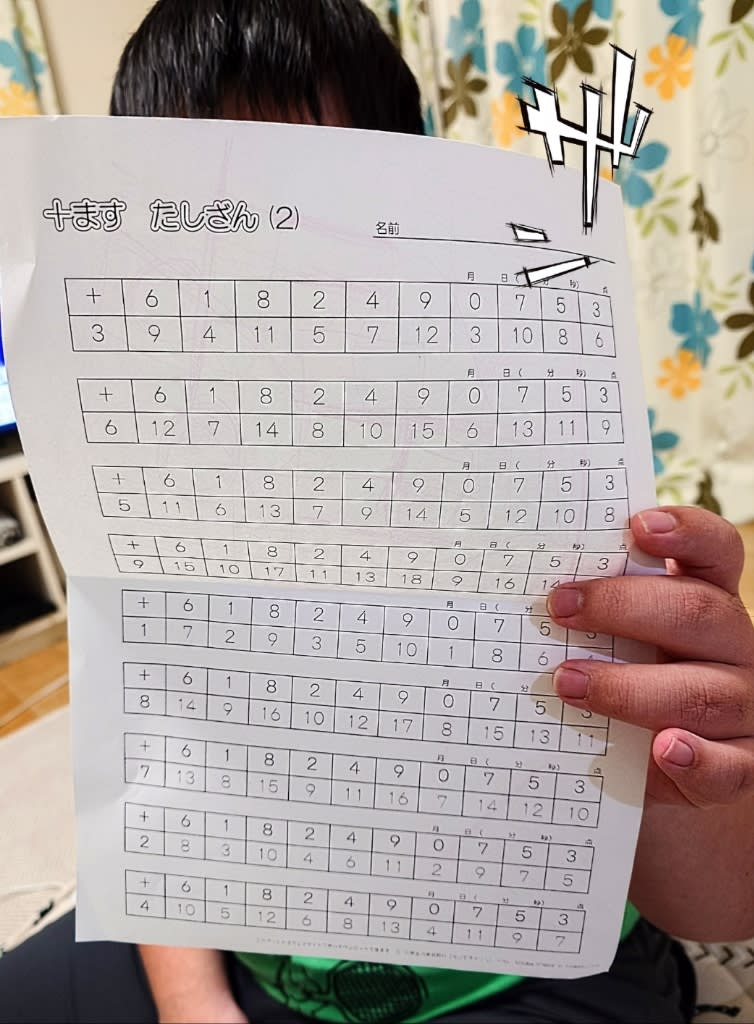 十ます たしざん (2)
名前
月 日 ( 分 秒) 点
+ 6 1 8 2 4 9 0 7 5 3
3 9 4 11 5 7 12 3 10 8 6
月 日 ( 分 秒) 点
+ 6 1 8 2 4 9 0 7 5 3
6 12 7 14 8 10 15 6 13 11 9
月 日 ( 分 秒) 点
+ 6 1 8 2 4 9 0 7 5 3
5 11 6 13 7 9 14 5 12 10 8
月 日 ( 分 秒) 点
+ 6 1 8 2 4 9 0 7 5 3
9 15 10 17 11 13 18 9 16 14
月 日 ( 分
+ 6 1 8 2 4 9 0 7 5 3
1 7 2 9 3 5 10 1 8 6
月 日 ( 分
+ 6 1 8 2 4 9 0 7 5 3
8 14 9 16 10 12 17 8 15 13 11
月 日 ( 分 秒) 点
+ 6 1 8 2 4 9 0 7 5 3
7 13 8 15 9 11 16 7 14 12 10
月 日 ( 分 秒) 点
+ 6 1 8 2 4 9 0 7 5 3
2 8 3 10 4 6 11 2 9 7 5
月 日 ( 分 秒) 点
+ 6 1 8 2 4 9 0 7 5 3
4 10 5 12 6 8 13 4 11 9 7